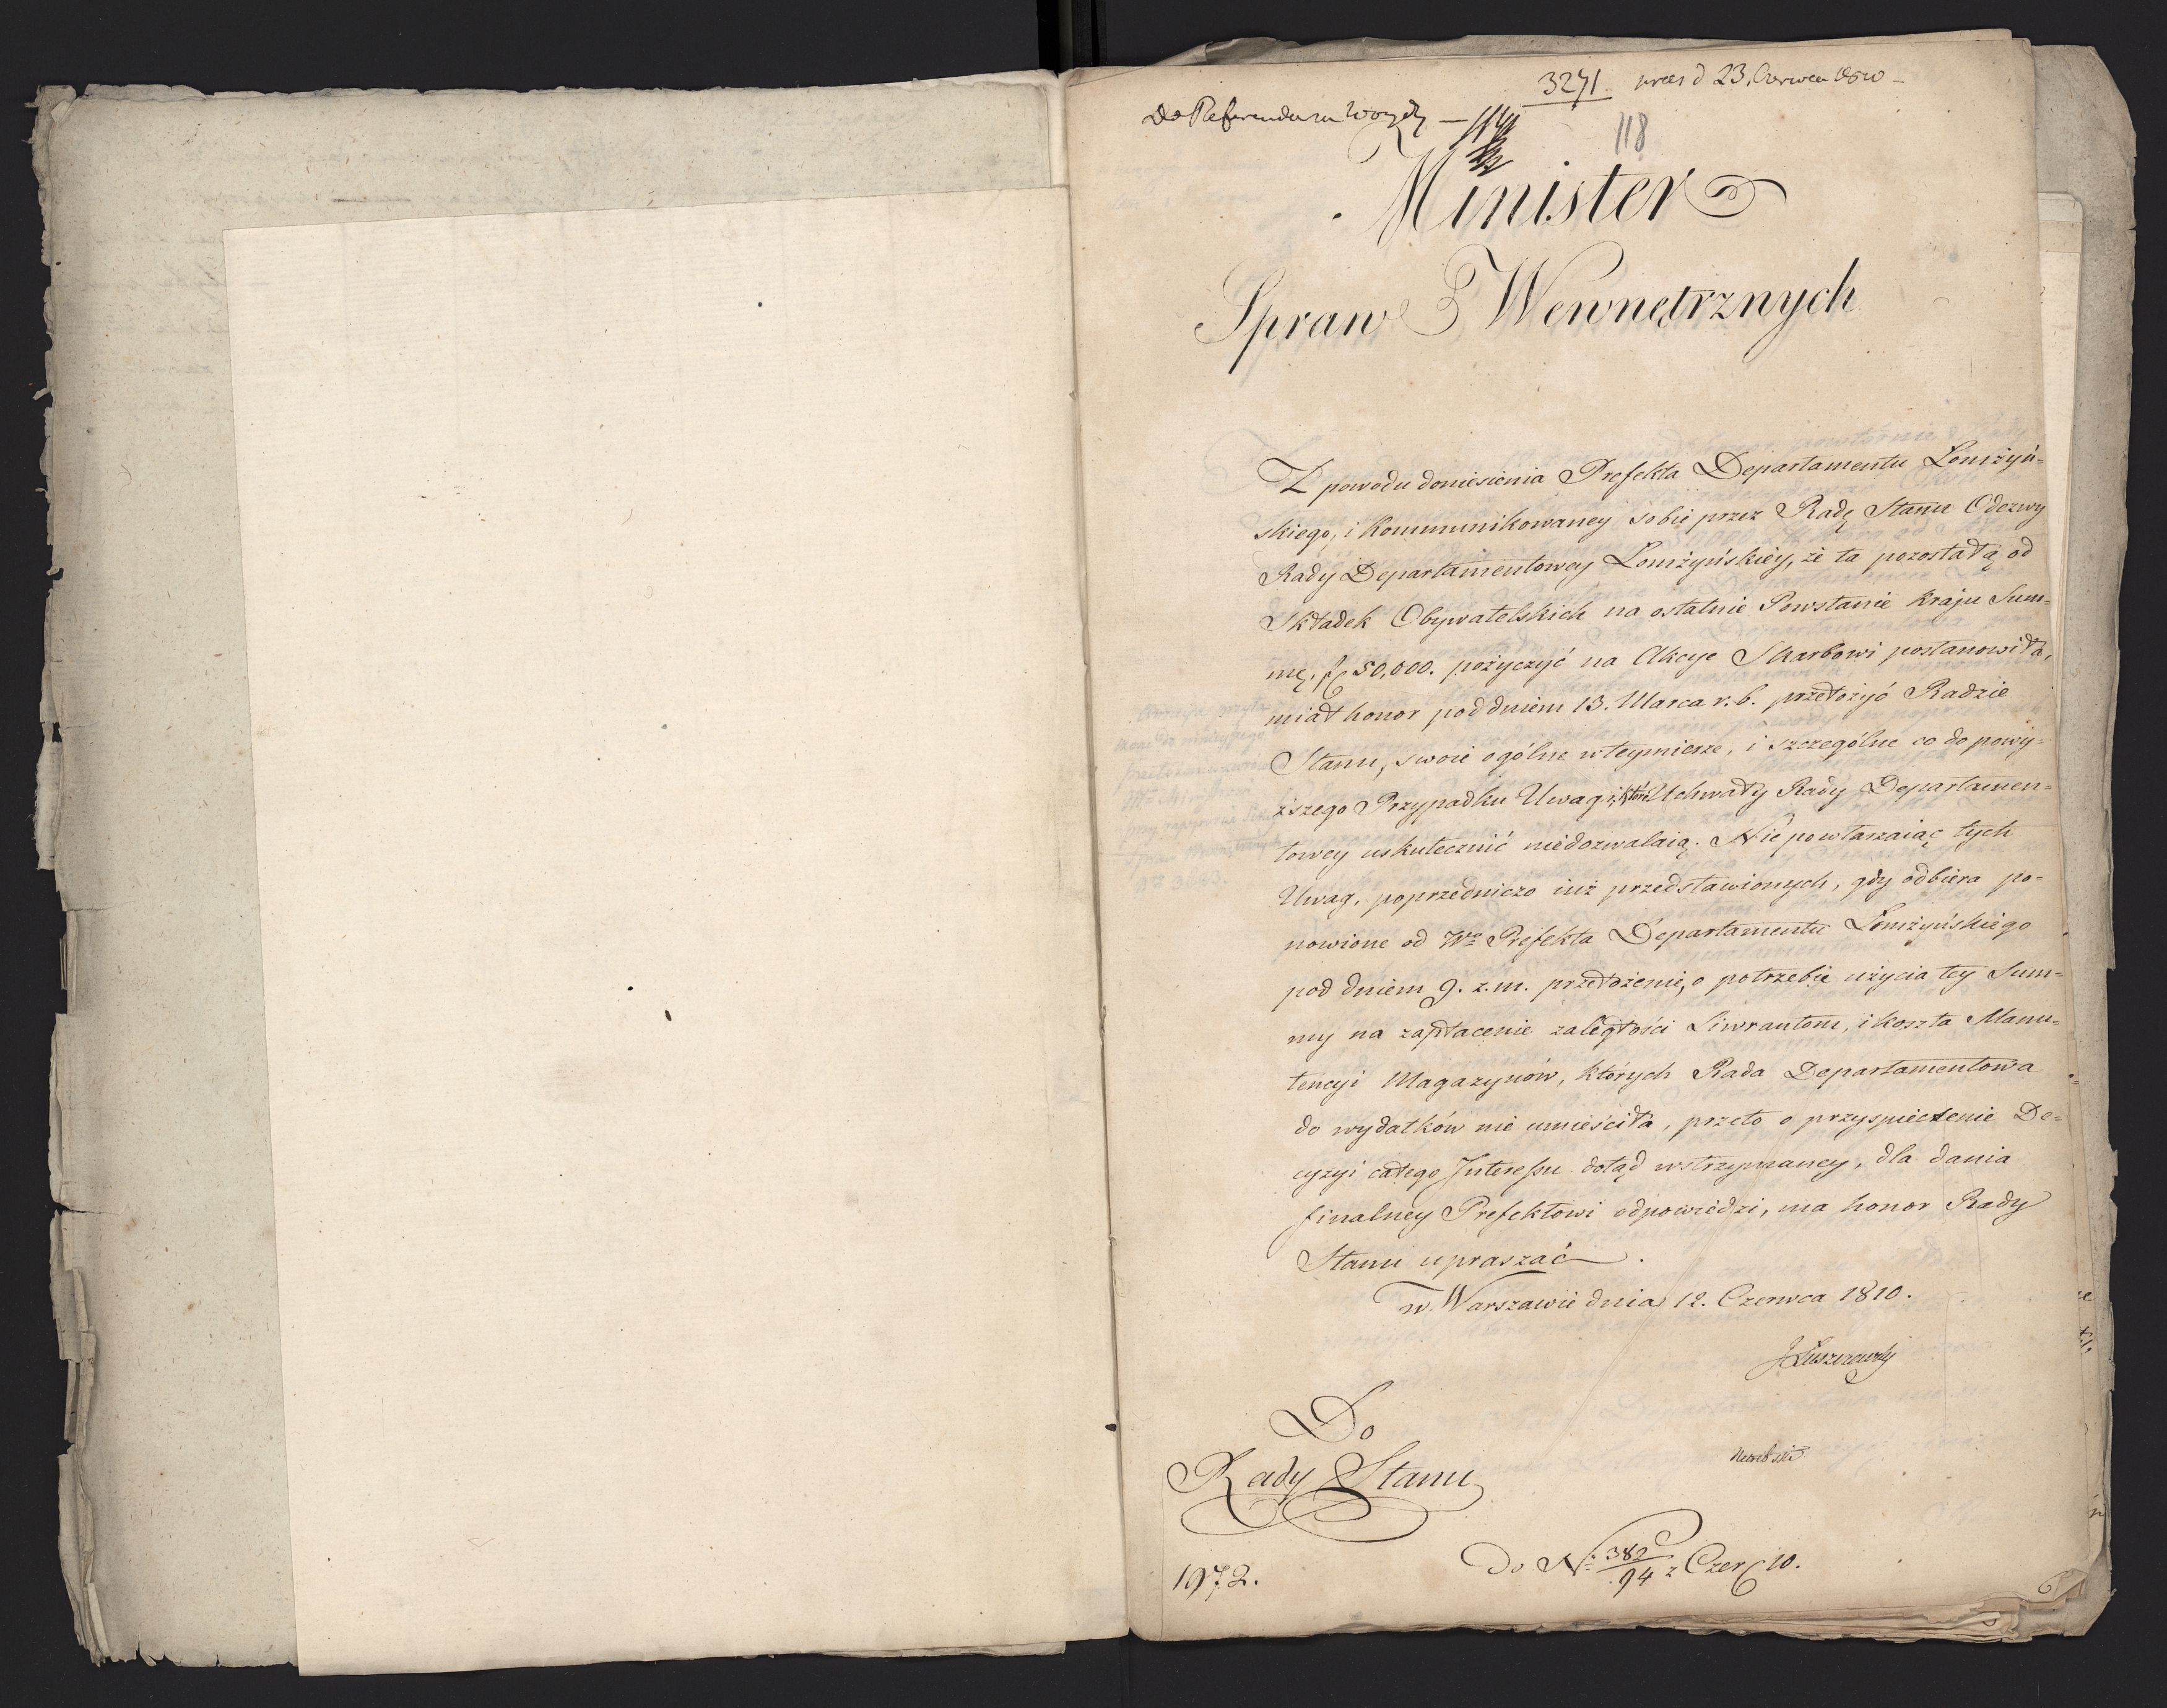 3271 prees d 23. Czerwca 1810 –
Do Referendarza Woydy –
118
Minister
Spraw Wewnętrznych
Z powodu doniesienia Prefekta Departamentu Łomżyń=
skiego, i kommunikowaney sobie przez Radę Stanu Odezwy
Rady Departamentowey Łomżyńskiéy, że ta pozostałą od
Składek Obywatelskich na ostatnie Powstanie kraju Sum=
mę, f 50,000. pożyczyć na Akcye Skarbowi postanowiła,
miał honor pod dniem 13. Marca r. b. przełożyć Radzie
Stanu, swoie ogólne w teymierze, i szczególne co do powy=
ższego Przypadku Uwagi, które Uchwały Rady Departamen=
towey uskutecznić niedozwalaią. Nie powtarzaiąc tych
Uwag, poprzedniczo iuż przedstawionych, gdy odbiera po=
nowione od Wo Prefekta Departamentu Łomżyńskiego
pod dniem 9. z. m. przełożenie, o potrzebie użycia tey Sum=
my na zapłacenie zaległości Liwrantom, i koszta Manu=
tencyi Magazynów, których Rada Departamentowa
do wydatków nie umieściła, przeto o przyspieszenie De=
cyzyi całego Interessu dotąd wstrzymaney, dla dania
finalney Prefektowi odpowiedzi, ma honor Rady
Stanu upraszać.
w Warszawie dnia 12. Czerwca 1810.
J Łuszczewsky
Do
Rady Stanu
1972.
Do No 382/94 z Czer 10.